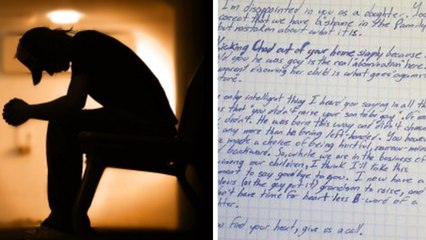 I'm disappointed in you as a daughter. You
correct that we have a shame in the family,
but mistaken about what it is.
Kicking Chad out of your home simply because
told you he was gay is the real abomination here.
parent disowning her child is what goes against
ture."
e only intelligent thing I heard you saying in all th
as that "you didn't raise your son to be gay". Of
didn't. He was born this way and didn't choose
any more than he being left-handed. You howev
e made a choice of being hurtful, narrow-mind
backward. So, while we are in the business of
wning our children, I think I'll take this
ment to say goodbye to you. I now have a
ulous (as the gay put it) grandson to raise, and
n't have time for heart less B-word of a
hter.
u find your heart, give us a call.